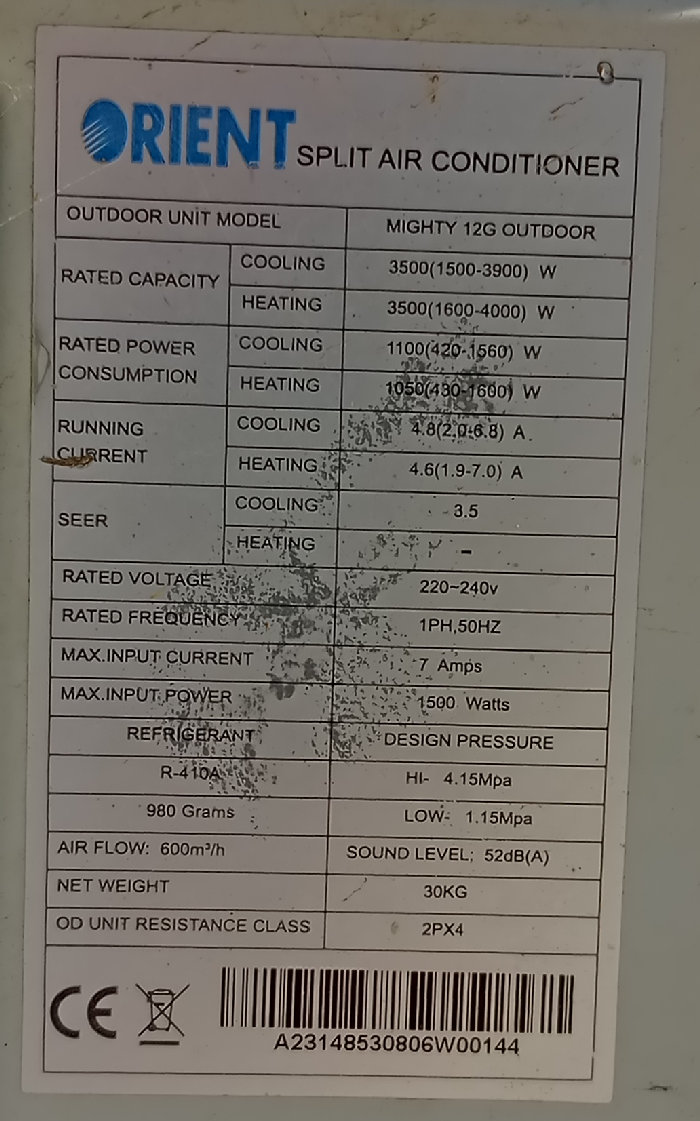 ORIENT SPLIT AIR CONDITIONER
OUTDOOR UNIT MODEL MIGHTY 12G OUTDOOR
RATED CAPACITY COOLING 3500(1500-3900) W
HEATING 3500(1600-4000) W
RATED POWER CONSUMPTION COOLING 1100(420-1560) W
HEATING 1050(430-1600) W
RUNNING CURRENT COOLING 4.8(2.0-6.8) A
HEATING 4.6(1.9-7.0) A
SEER COOLING 3.5
HEATING –
RATED VOLTAGE 220~240v
RATED FREQUENCY 1PH,50HZ
MAX.INPUT CURRENT 7 Amps
MAX.INPUT POWER 1500 Watts
REFRIGERANT DESIGN PRESSURE
R-410A HI- 4.15Mpa
980 Grams LOW- 1.15Mpa
AIR FLOW: 600m³/h SOUND LEVEL; 52dB(A)
NET WEIGHT 30KG
OD UNIT RESISTANCE CLASS 2PX4
CE
A23148530806W00144